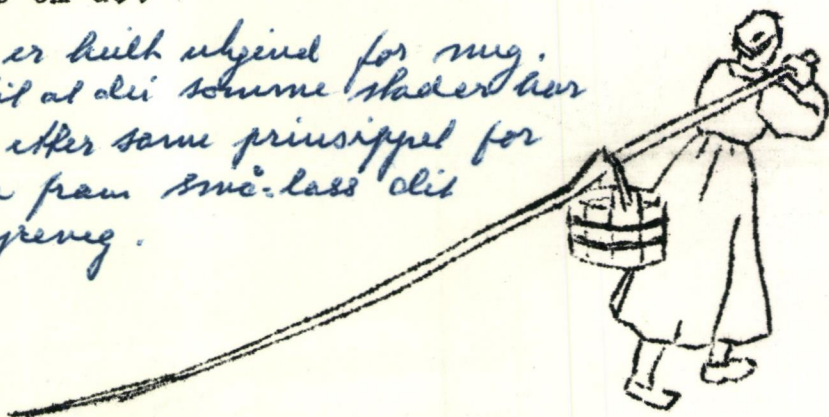 er heilt ukjend for meg.
til at dei somme stader har
etter same prinsippet for
fram små-lass dit
yreveg.